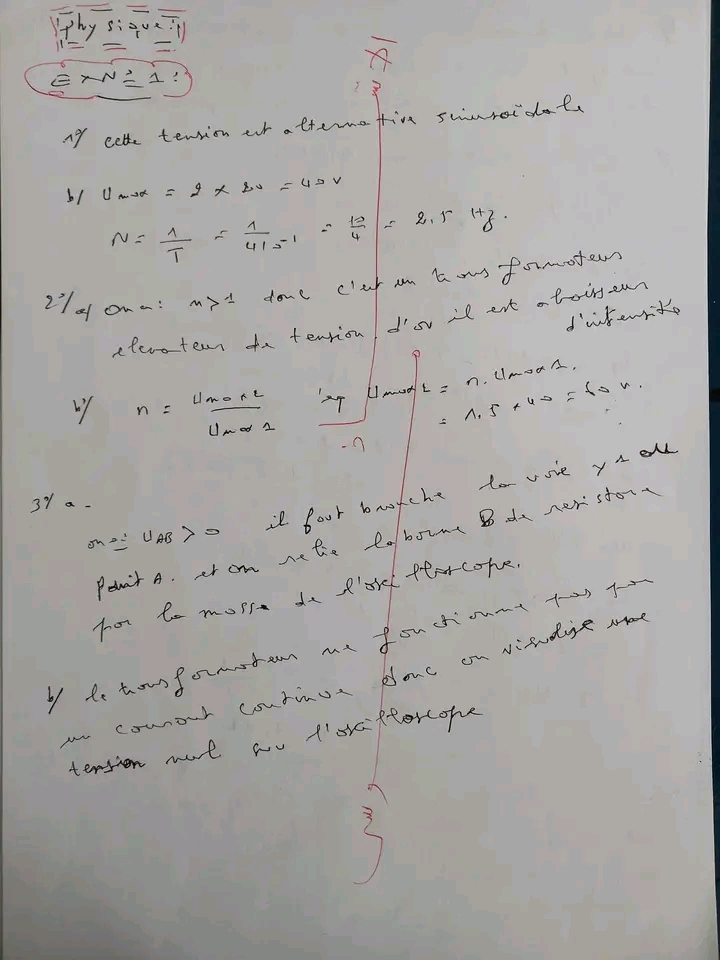 physique :
Ex N° 1 :
1°/ cette tension est alternative sinusoïdale
b/ Umax = 2 x 20 = 40 v
N = 1/T = 1/4 10⁻¹ = 10/4 = 2,5 Hz.
2°/ a/ on a : n > 1 donc c'est un transformateur
elevateur de tension d'où il est abaisseur
d'intensité
b°/ n = Umax2/Umax1 Umax2 = n. Umax1.
= 1,5 x 40 = 60 v.
3°/ a -
on a : UAB > 0 il faut branche la voie y1 au
point A. et on relie la borne B de resistore
par la masse de l'oscilloscope.
b/ le transformateur ne fonctionne pas par
un courant continue donc on visualise une
tension nul sur l'oscilloscope